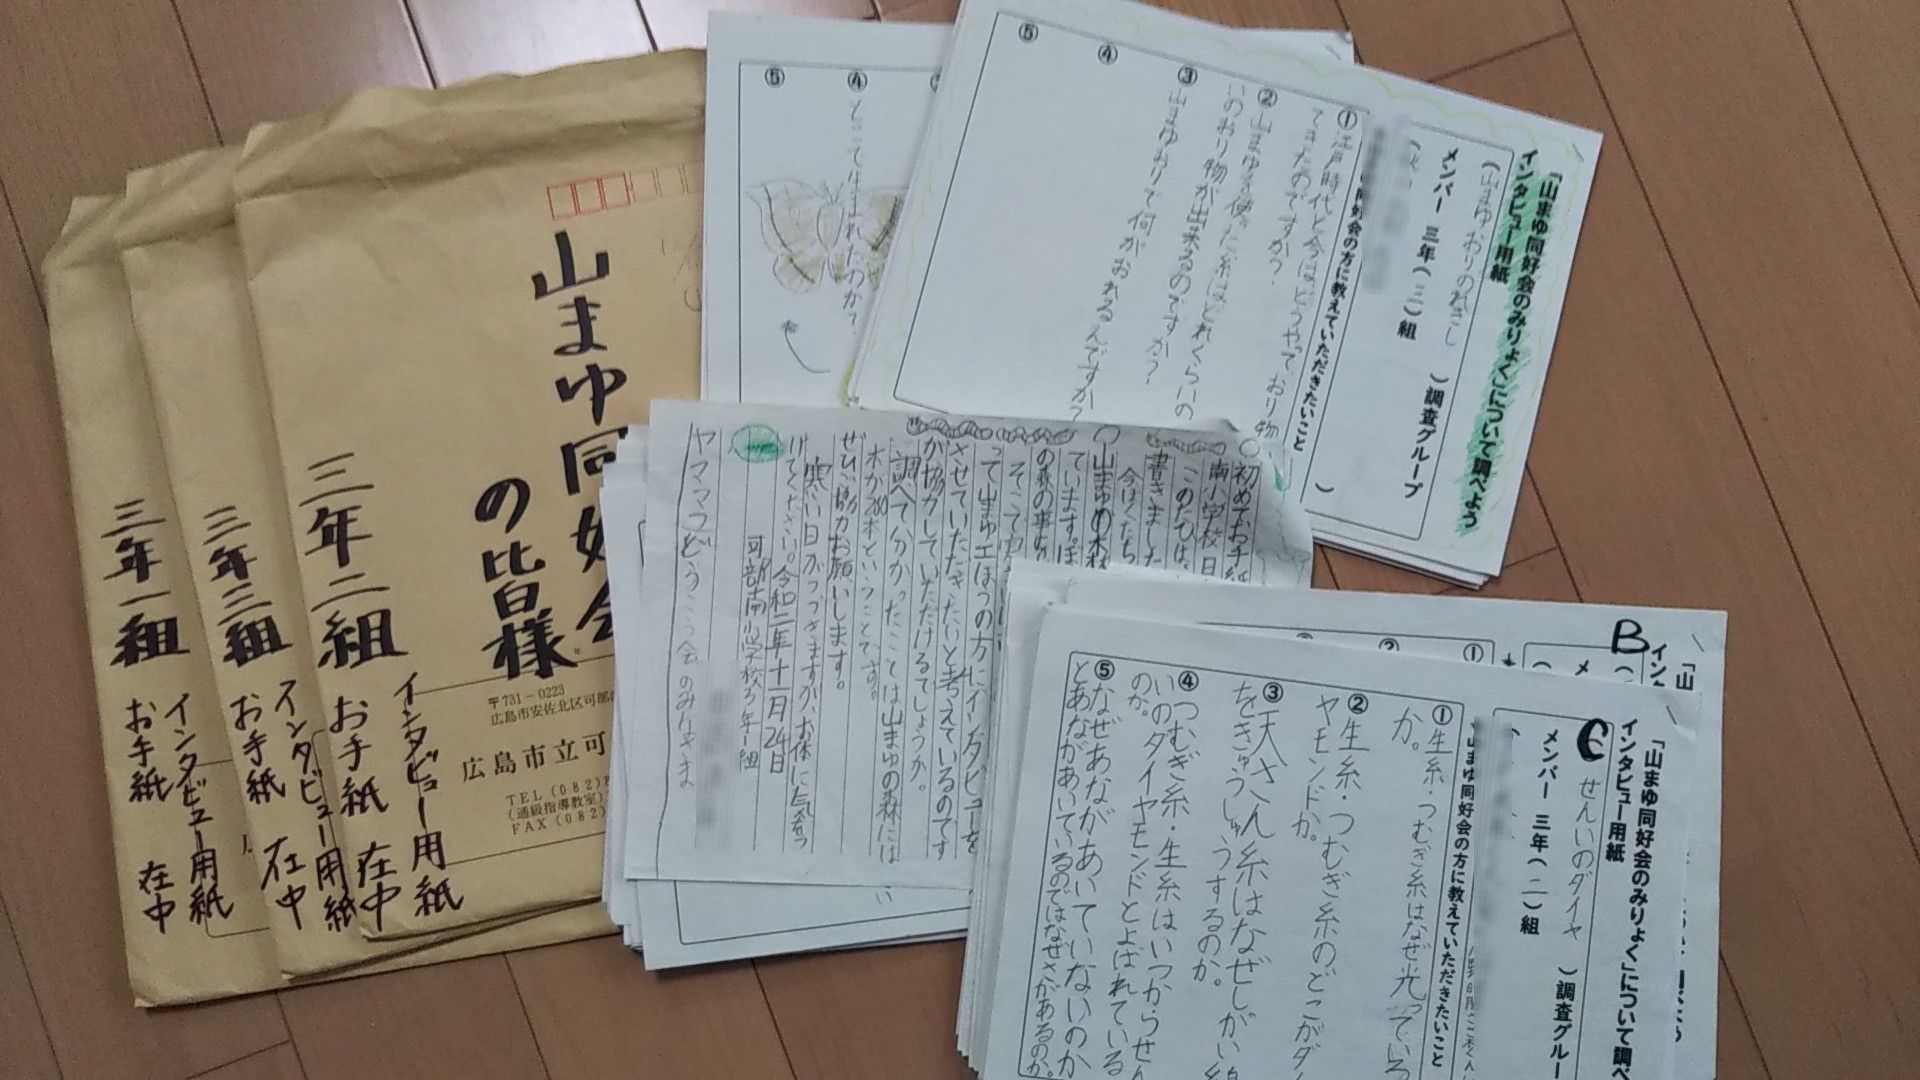 山まゆ同好会
の皆様
三年二組
インタビュー用紙
お手紙 在中
三年三組
インタビュー用紙
お手紙 在中
三年一組
インタビュー用紙
お手紙 在中
〒731-0223
広島市安佐北区可部
広島市立可
TEL(082)8
(通級指導教室)
FAX(082)
④
⑤
「山まゆ同好会のみりょく」について調べよう
インタビュー用紙
(山まゆおりのれきし)調査グループ
メンバー 三年(二)組
同好会の方に教えていただきたいこと
①江戸時代と今はどうやっており物
てきたのですか?
②山まゆを使った糸はどれくらいの
いのおり物が出来るのですか?
③山まゆおりて何がおれるんですか?
④
⑤
初めてお手紙
南小学校
このたびは、
書きました
今ぼくたち
山まゆの木林
ています。ぼ
の森の事
って山まゆ工ほうの方にインタビューを
させていただきたいと考えているのです
が協力していただけるでしょうか。
調べて分かったことは山まゆの森には
木が280本ということです。
ぜひ協力お願いします。
寒い日がつづきますが、お体に気をつ
けてください。令和二年十一月24日
可部南小学校3年一組
ヤママユどうこう会のみなさま
B
C
「山まゆ同好会のみりょく」について調べ
インタビュー用紙
(せんいのダイヤ)調査グルー
メンバー 三年(二)組
山まゆ同好会の方に教えていただきたいこと
①生糸・つむぎ糸はなぜ光っている
か。
②生糸・つむぎ糸のどこがダ
ヤモンドか。
③天さん糸はなぜしがい線
をきゅうしゅうするのか。
④つむぎ糸・生糸はいつからせん
いのダイヤモンドとよばれている
のか。
⑤なぜあながあいていないのか
とあながあいているのではなぜさがあるのか。